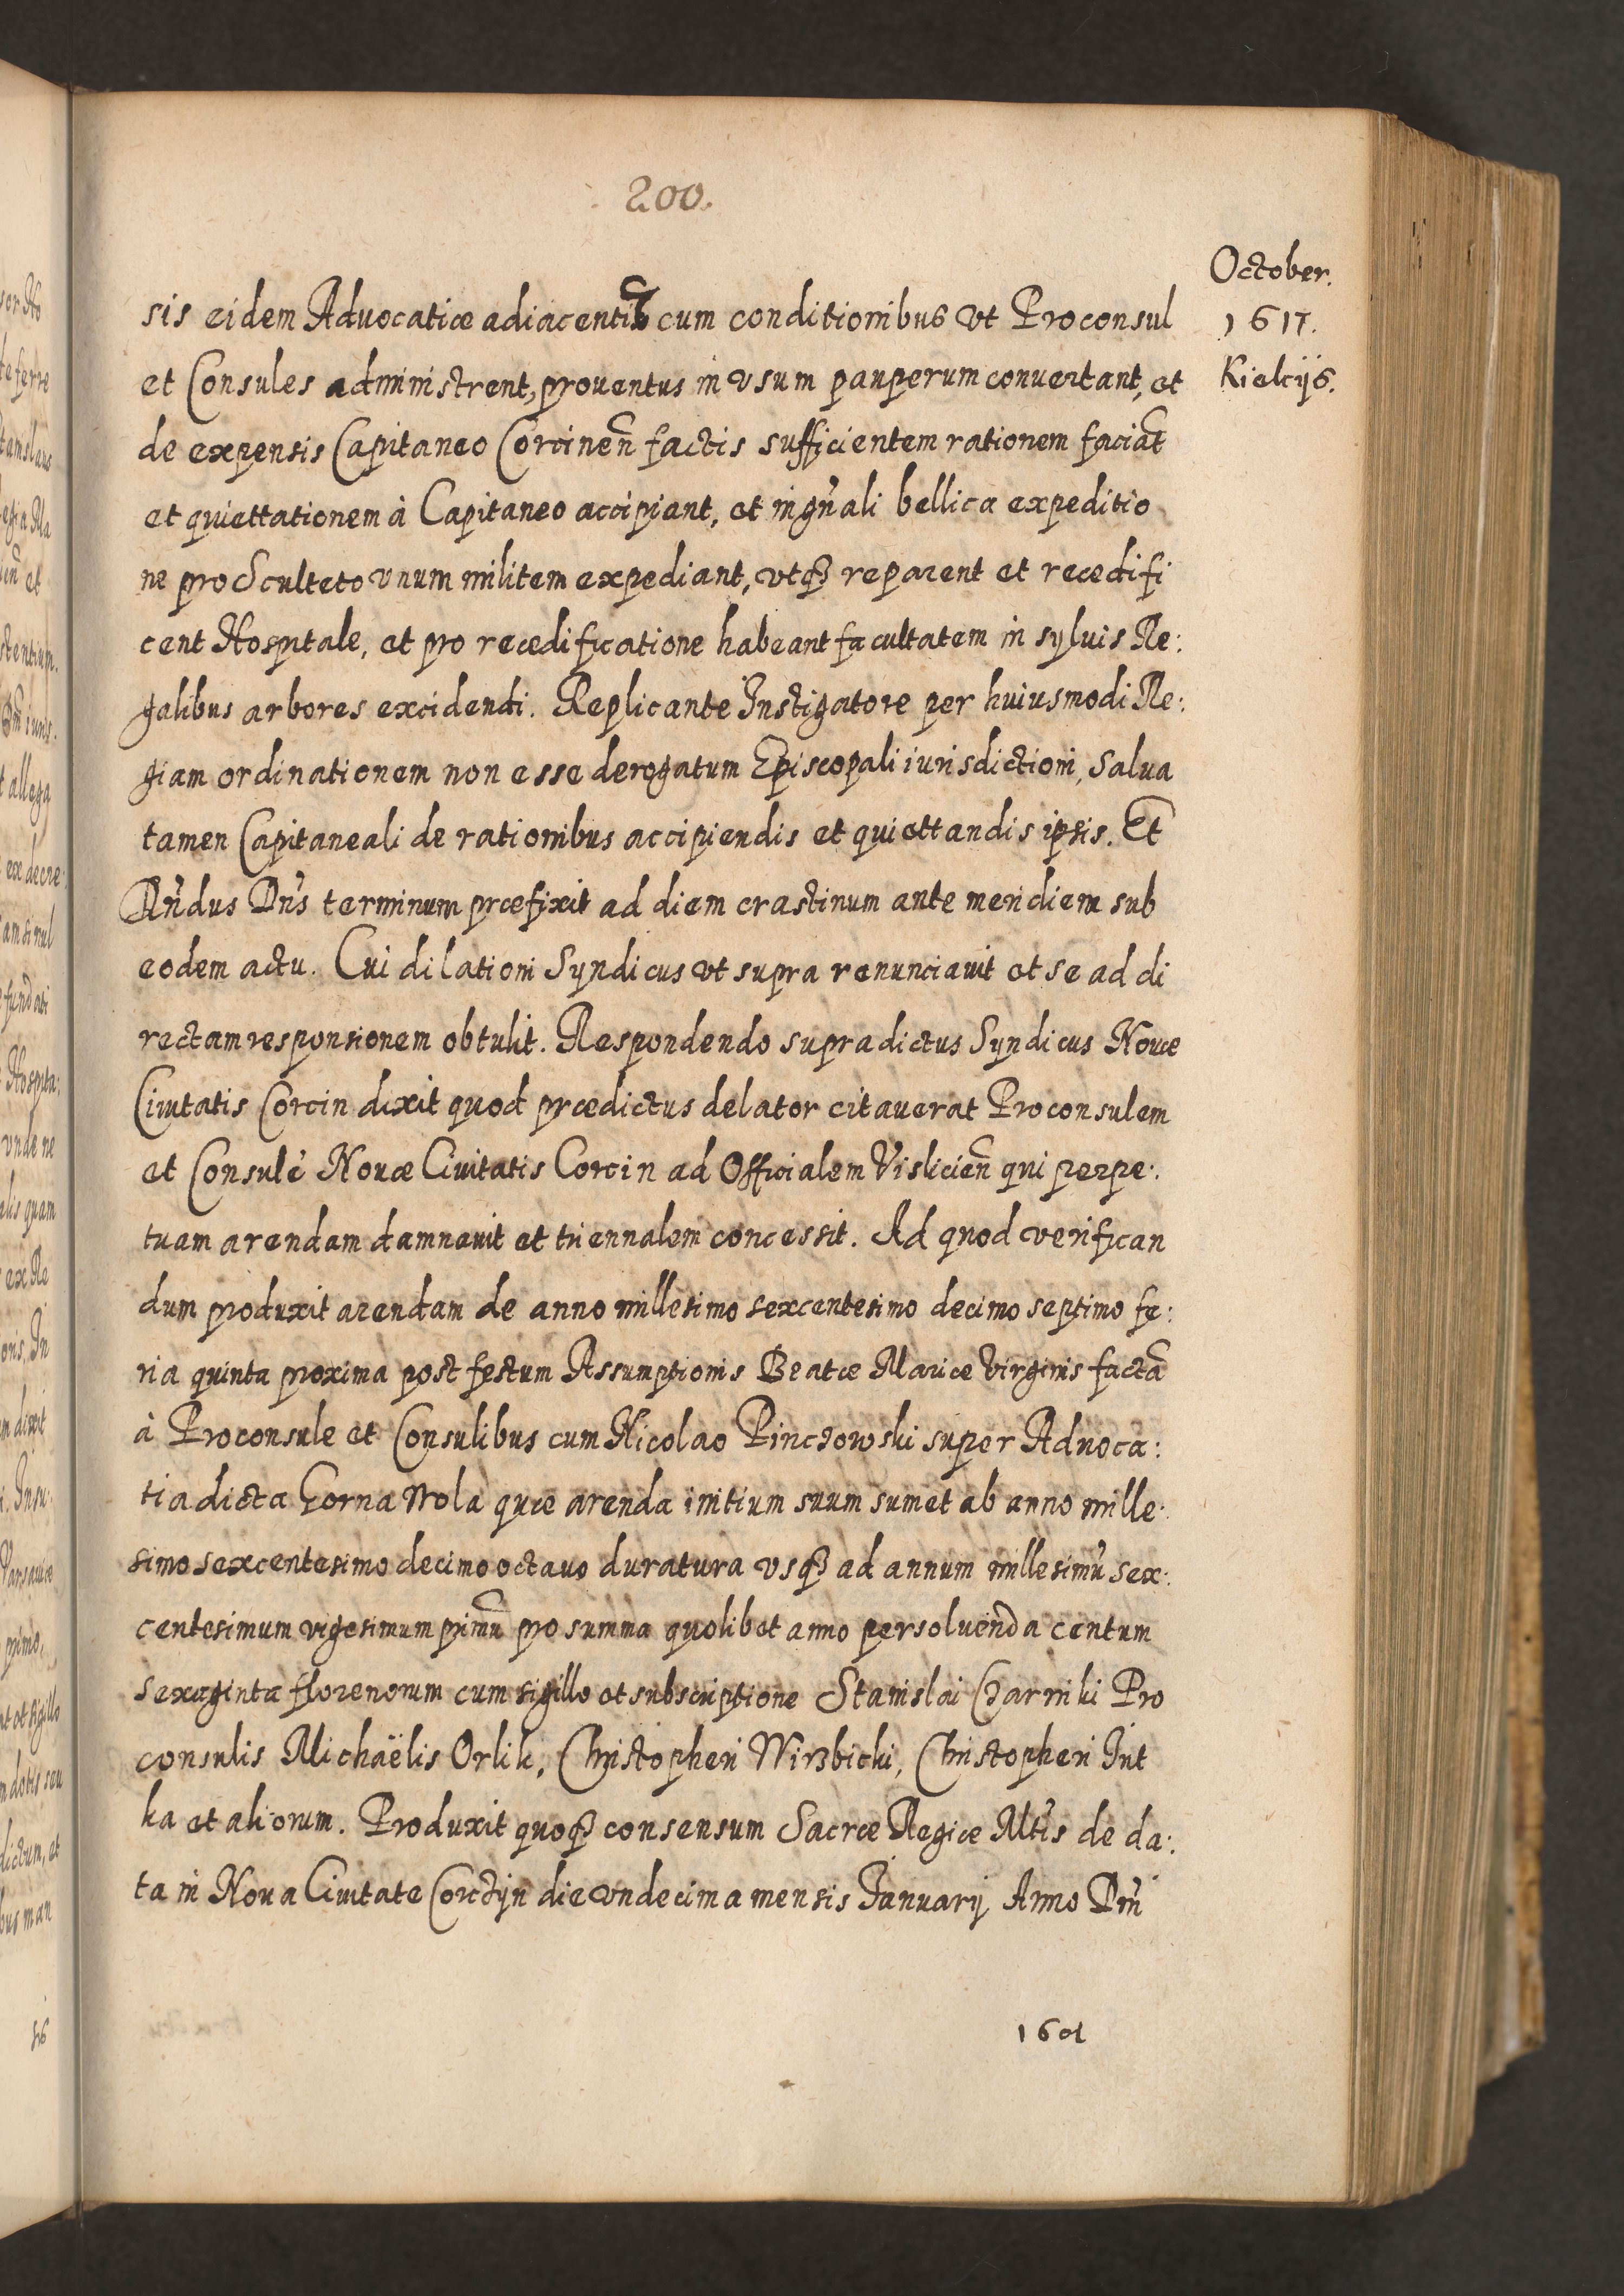 200.
October.
1617.
Kielcijs.
sis eidem Aduocatiæ adiacentib cum conditionibus vt Proconsul
et Consules administrent, prouentus in vsum pauperum conuertant, et
de expensis Capitaneo Corcineñ factis sufficientem rationem faciãt
et quiettationem à Capitaneo accipiant, et in gnãli bellica expeditio
ne pro Sculteto vnum militem expediant, vtqȝ reparent et reædifi
cent Hospitale, et pro reædificatione habeant facultatem in syluis Re:
galibus arbores excidendi. Replicante Instigatore per huiusmodi Re:
giam ordinationem non esse derogatum Episcopali iurisdictioni, Salua
tamen Capitaneali de rationibus accipiendis et quiettandis ipsis. Et
Rñdus Dñs terminum præfixit ad diem crastinum ante meridiem sub
eodem actu. Cui dilationi Syndicus vt supra renunciauit et se ad di
rectam responsionem obtulit. Respondendo supradictus Syndicus Nouæ
Ciuitatis Corcin dixit quod prædictus delator citauerat Proconsulem
et Consulẽ Nouæ Ciuitatis Corcin ad Officialem Vislicieñ qui perpe:
tuam arendam damnauit et triennalem concessit. Ad quod verifican
dum produxit arendam de anno millesimo sexcentesimo decimo septimo fe:
ria quinta proxima post festum Assumptionis Beatæ Mariæ Virginis factã
à Proconsule et Consulibus cum Nicolao Pinczowski super Aduoca:
tia dicta Gorna Wola quæ arenda initium suum sumet ab anno mille:
simo sexcentesimo decimo octauo duratura vsqȝ ad annum millesimũ sex:
centesimum vigesimum primũ pro summa quolibet anno persoluenda centum
sexaginta florenorum cum sigillo et subscriptione Stanislai Czarniki Pro
consulis Michaëlis Orlik, Christopheri Wirzbicki, Christopheri Int
ka et aliorum. Produxit quoqȝ consensum Sacræ Regiæ Mtis de da:
ta in Noua Ciuitate Corczÿn die vndecima mensis Ianuarij Anno Dñi